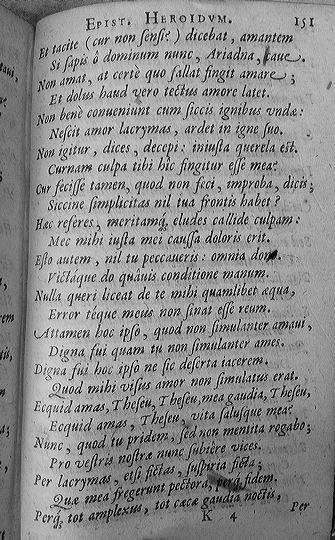 EPIST. HEROIDVM. 151
Et tacite (cur non sensi?) dicebat, amantem
Si sapis ô dominum nunc, Ariadna, caue.
Non amat, at certè quo fallat fingit amare;
Et dolus haud vero tectus amore latet.
Non benè conueniunt cum siccis ignibus vndæ:
Nescit amor lacrymas, ardet in igne suo.
Non igitur, dices, decepi: iniusta querela est.
Curnam culpa tibi hîc fingitur esse mea?
Cur fecisse tamen, quod non feci, improba, dicis;
Siccine simplicitas nil tua frontis habet?
Hæc referes, meritamq́; eludes callide culpam:
Nec mihi iusta mei caussa doloris erit.
Esto autem, nil tu peccaueris: omnia dono.
Victáque do quâuis conditione manum.
Nulla queri liceat de te mihi quamlibet æqua,
Error téque meus non sinat esse reum.
Attamen hoc ipso, quod non simulanter amaui,
Digna fui quam tu non simulanter ames.
Digna fui hoc ipso ne sic deserta iacerem.
Quod mihi visus amor non simulatus erat.
Ecquid amas, Theseu, Theseu, mea gaudia, Theseu,
Ecquid amas, Theseu, vita salusque mea?
Nunc, quod tu pridem, sed non mentita rogabo;
Pro vestris nostræ nunc subiêre vices.
Per lacrymas, etsi fictas, suspiria ficta;
Quæ mea fregerunt pectora, perq́; fidem.
Perq́; tot amplexus, tot cæcæ gaudia noctis,
K 4 Per